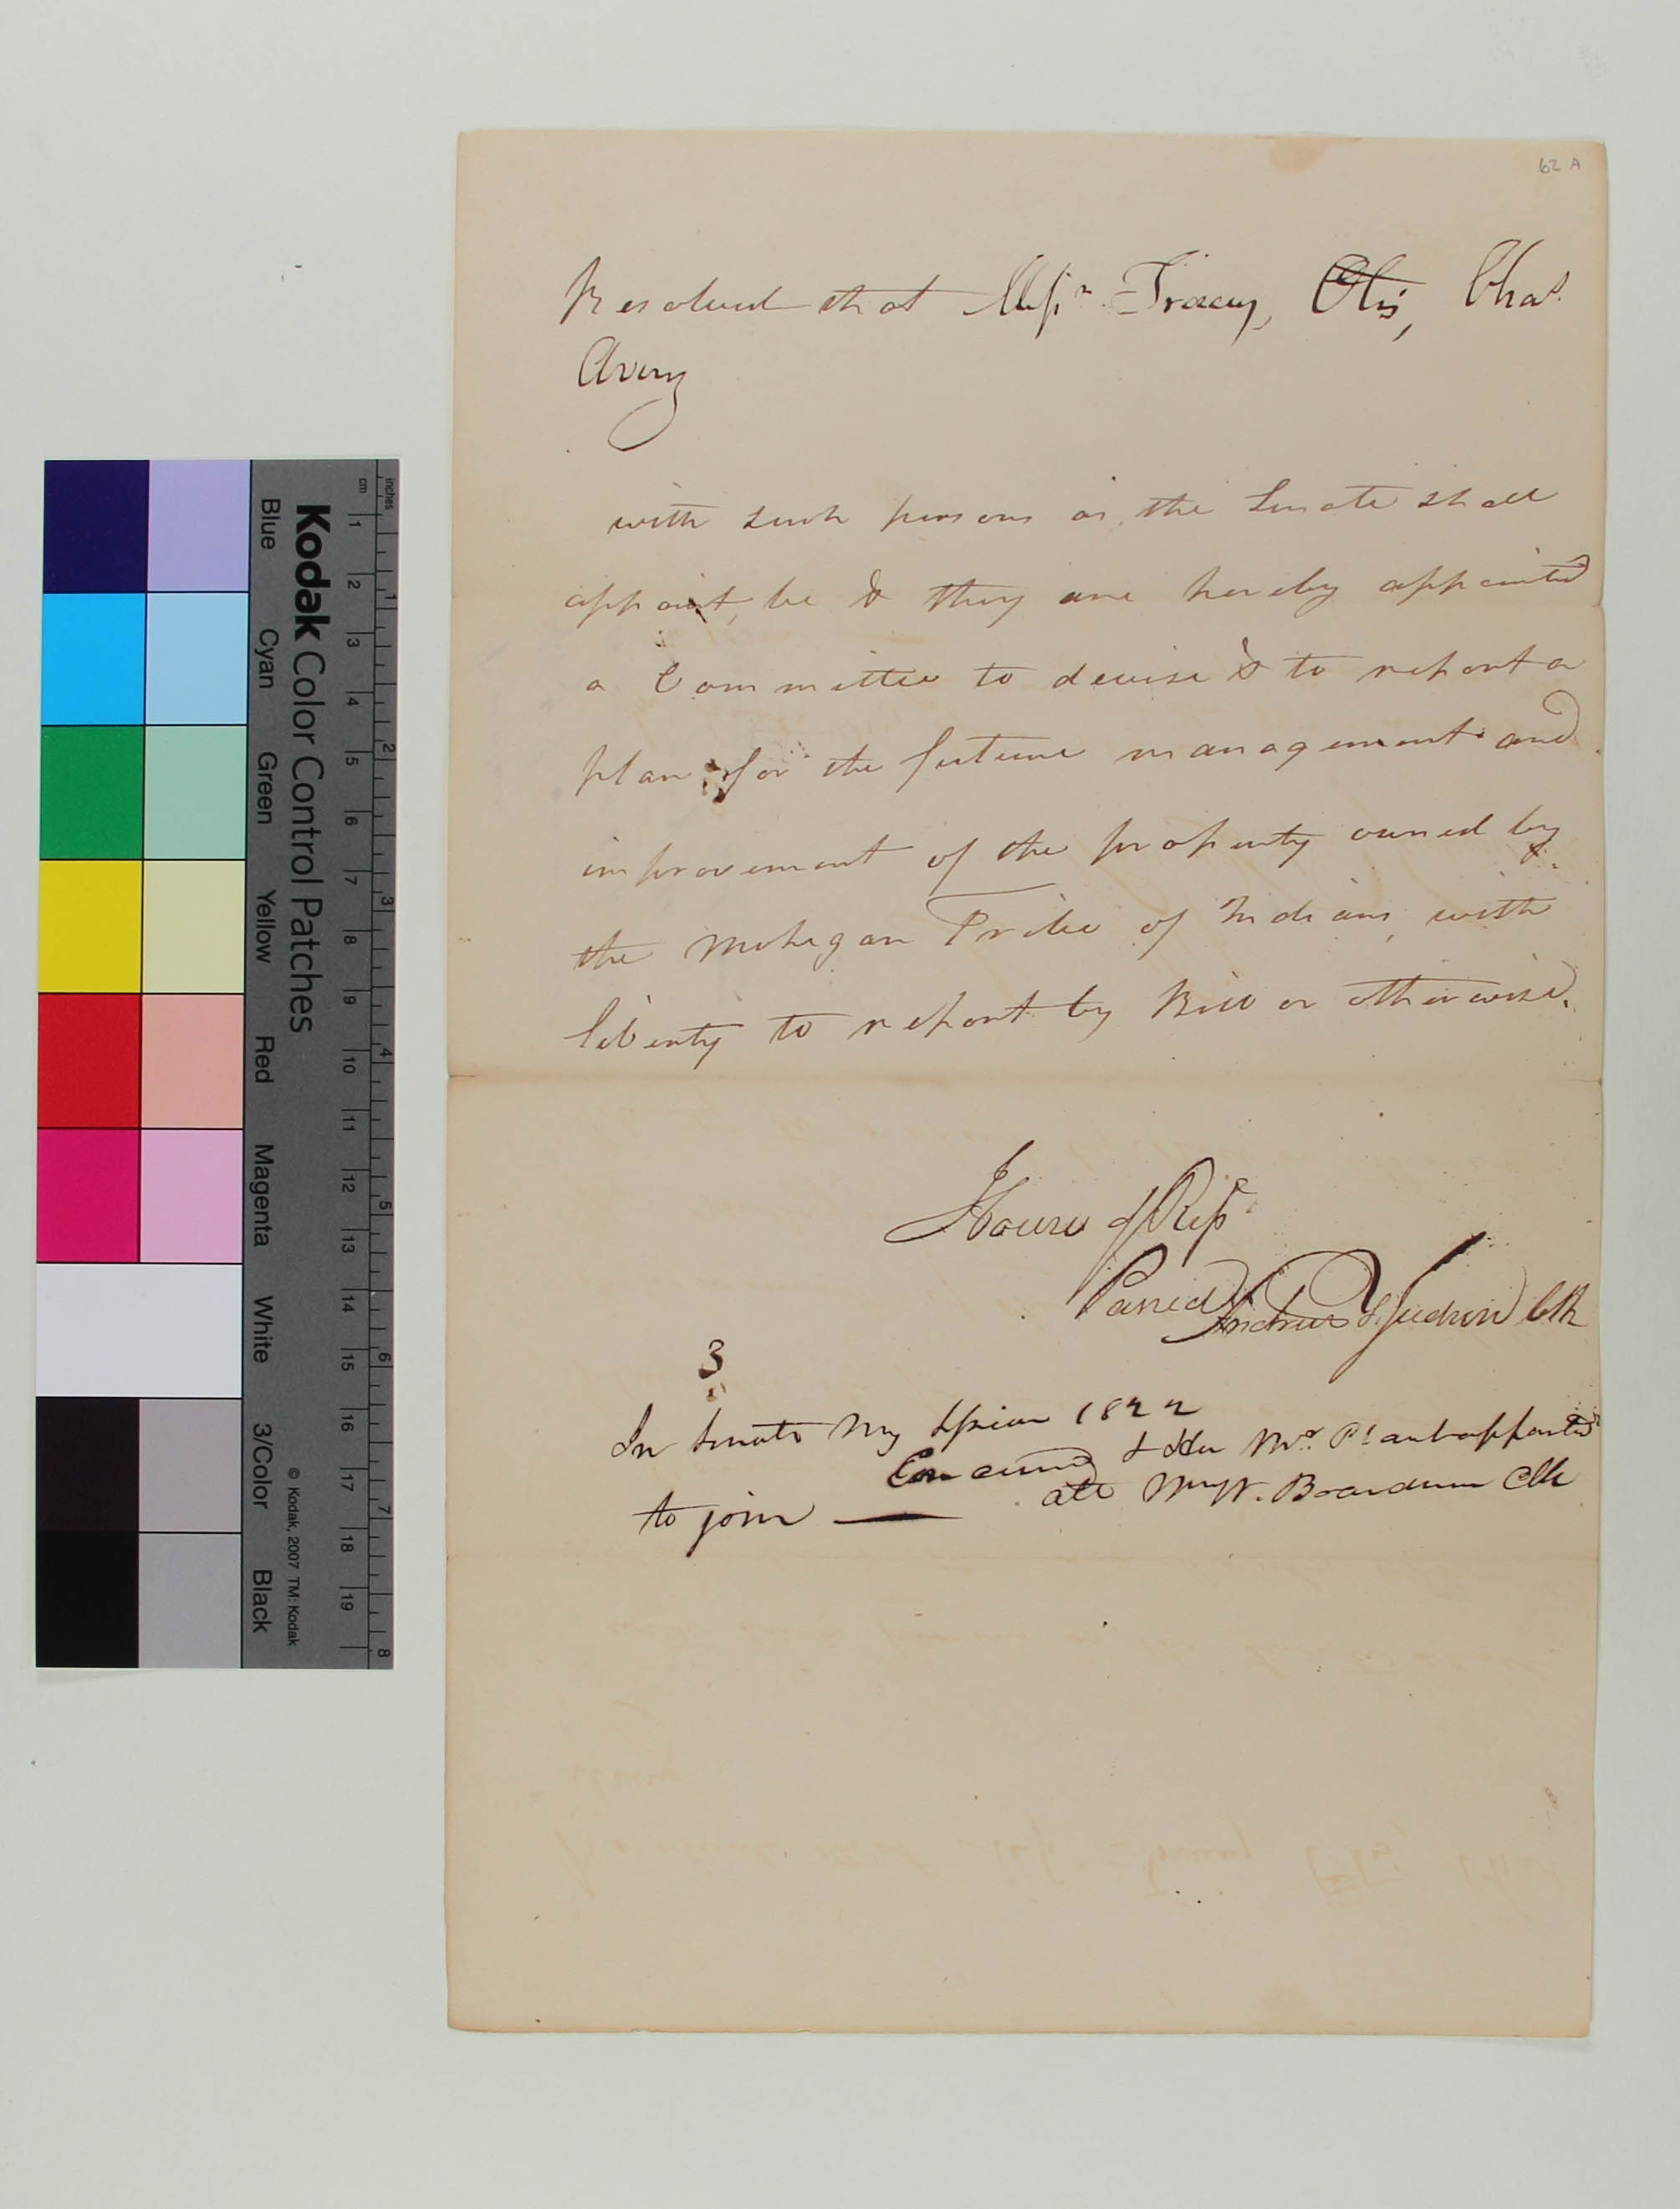 62 A
Resolved that Messrs. Tracy, Otis, Chas.
Avery
with such persons as the Senate shall
appoint, be & they are hereby appointed
a Committee to devise & to report a
plan for the future management and
improvement of the property owned by
the Mohegan Tribe of Indians, with
liberty to report by Bill or otherwise.
House of Reps
Passed Andrew T. Judson Clk
3
In Senate My Session 1822
Concurred & Hon Mr. Plant appointed
to join — att Wm W. Boardman Clk
inches
cm
1 2 3 4 5 6 7 8 9 10 11 12 13 14 15 16 17 18 19
1 2 3 4 5 6 7 8
Kodak Color Control Patches
© Kodak, 2007 TM: Kodak
Blue Cyan Green Yellow Red Magenta White 3/Color Black